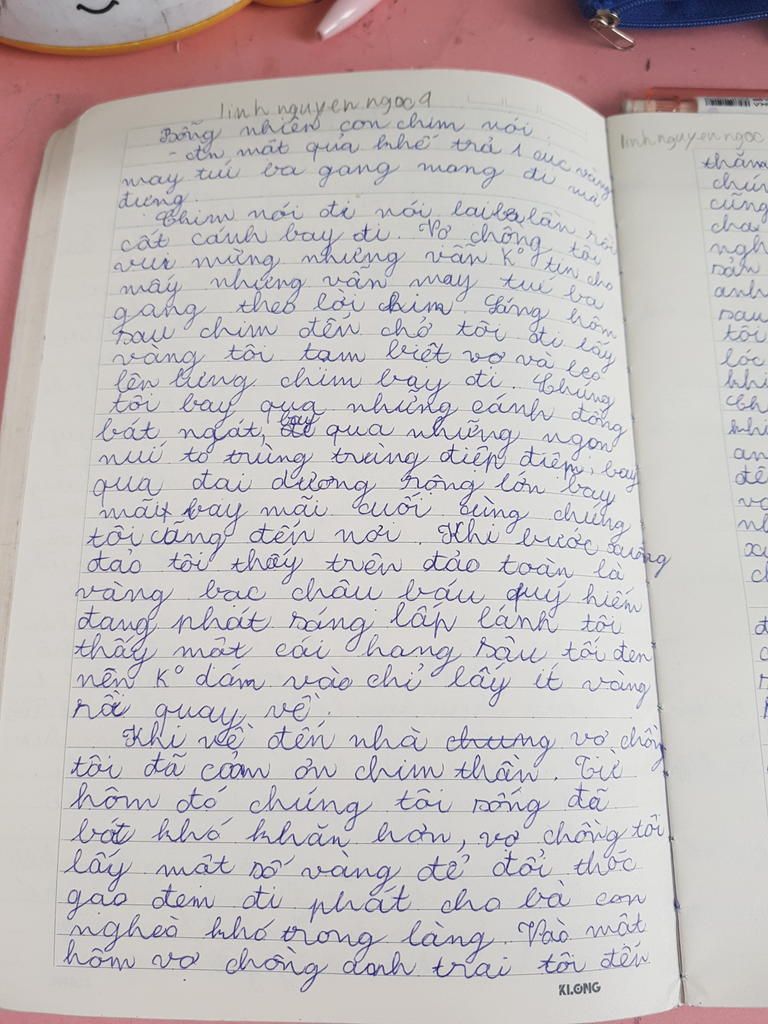 linhnguyenngoc9
Bỗng nhiên con chim nói:
- Ăn một quả khế trả 1 cục vàng
may túi ba gang mang đi mà
đựng.
Chim nói đi nói lại lần rồi
cất cánh bay đi. Vợ chồng tôi
vui mừng nhưng vẫn K° tin cho
mấy nhưng vẫn may túi ba
gang theo lời chim. Sáng hôm
sau chim đến chở tôi đi lấy
vàng tôi tạm biệt vợ và leo
lên lưng chim bay đi. Chúng
tôi bay qua những cánh đồng
bát ngát, bay qua những ngọn
núi to trùng trùng điệp điệm, bay
qua đại dương rộng lớn bay
mãi bay mãi cuối cùng chúng
tôi cũng đến nơi. Khi bước xuống
đảo tôi thấy trên đảo toàn là
vàng bạc châu báu quý hiếm
đang phát sáng lấp lánh tôi
thấy một cái hang sâu tối đen
nên K° dám vào chỉ lấy ít vàng
rồi quay về.
Khi về đến nhà chung vợ chồng
tôi đã cảm ơn chim thần. Từ
hôm đó chúng tôi sống đã
bớt khó khăn hơn, vợ chồng tôi
lấy một số vàng để đổi thóc
gạo đem đi phát cho bà con
nghèo khó trong làng. Vào một
hôm vợ chồng anh trai tôi đến
KLONG
linhnguyenngoc
thăm
chún
cũng
cha
ngh
sản
anh
sau
tôi
lóc
khi
Ch
khi
an
đế
vợ
nh
xu
ch